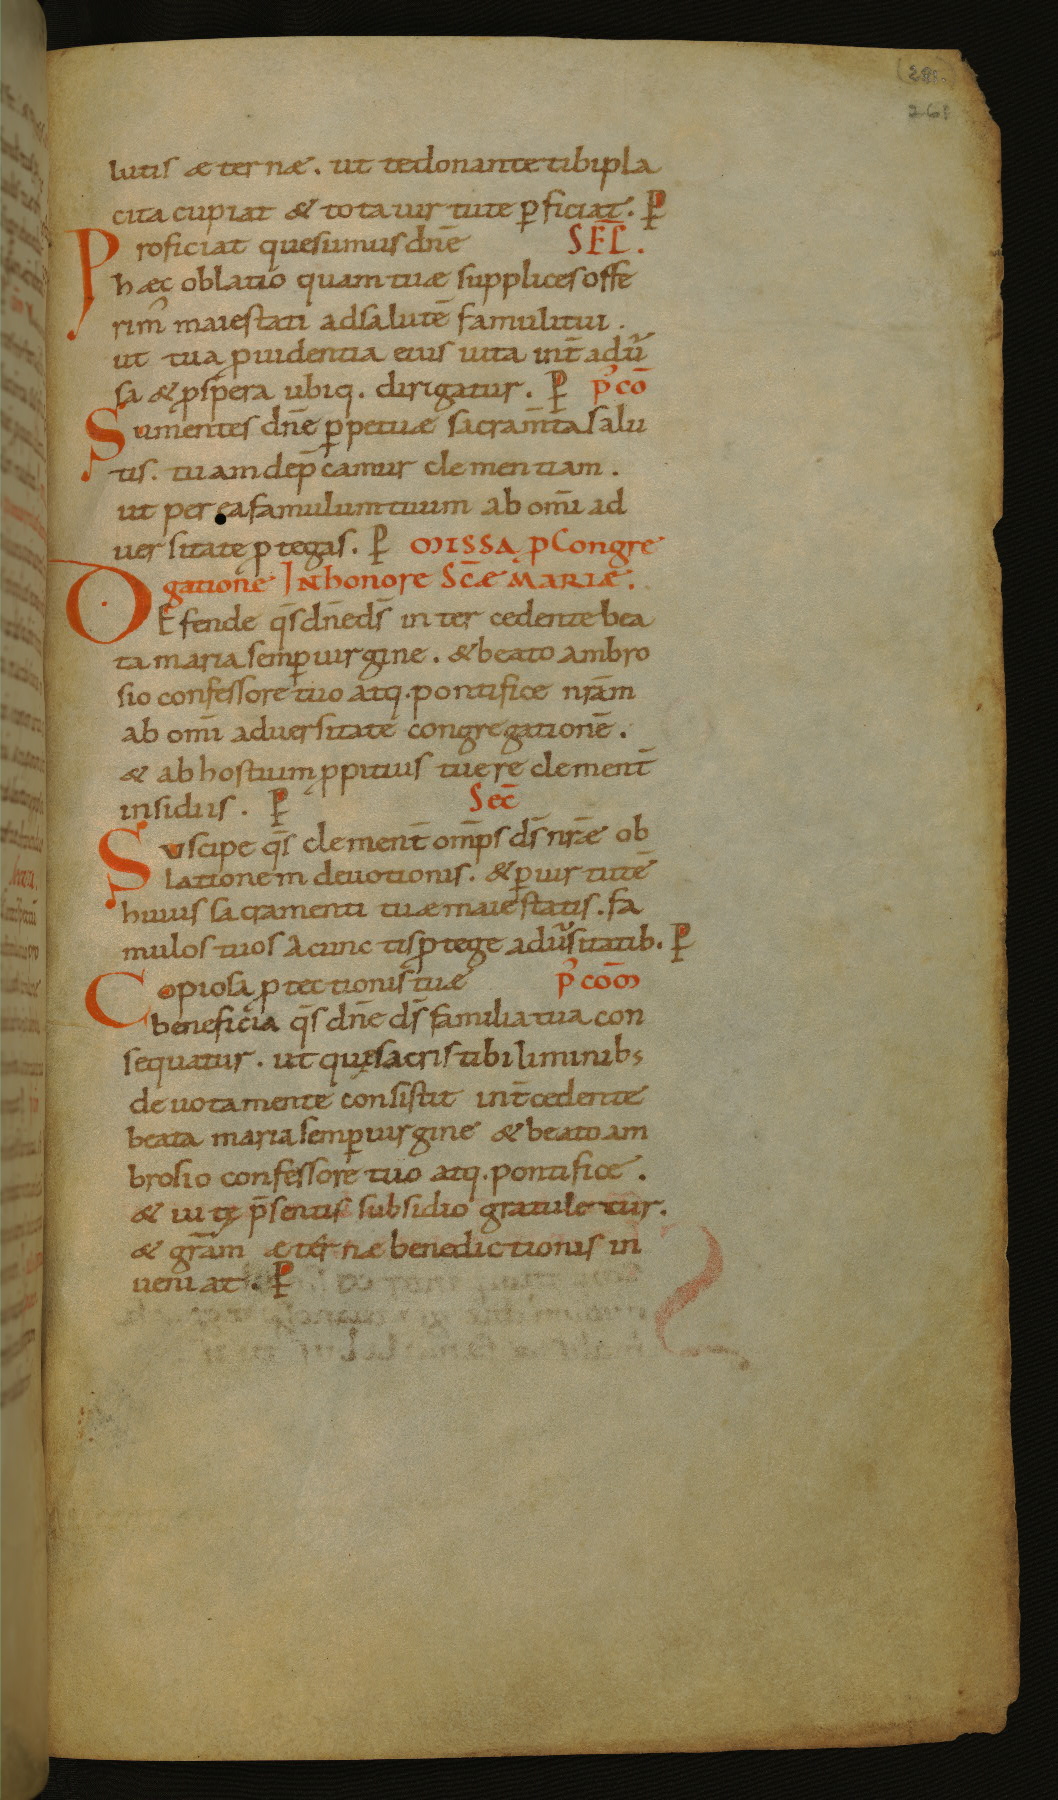 261
lutis æternæ. ut te donante tibi pla
cita cupiat & tota uirtute p̱ficiat. P̱
Proficiat quesumus dñe SE͞C.
hæc oblatio quam tuæ supplices offe
rim᾽ maiestati ad salutē famuli tui.
ut tua ꝓuidentia eius uita int̄ adu᷑
sa & ꝓsp̱era ubiq. dirigatur. P̱ p᾽ cō
Sumentes dñe p̱petuæ sacram̄ta salu
tis. tuam dep̄camur clementiam.
ut per ea famulum tuum ab om̄i ad
uersitate ꝓtegas. P̱ MISSA ꝓ Congre
gatione IN honore Sc̄e MARIÆ.
DEfende q̄s dñe ds̄ intercedente bea
ta maria semp̱ uirgine. & beato ambro
sio confessore tuo atq. pontifice nr̄am
ab om̄i aduersitate congregationē.
& ab hostium ꝓpitius tuere clement̄
insidiis. P̱ Sec̄
Suscipe q̄s clement̄ om̄ps ds̄ nr̄æ ob
lationem deuotionis. & p̱ uirtutē
huius sacramenti tuæ maiestatis. fa
mulos tuos a cunctis ꝓtege adu᷑sitatib. P̱
Copiosa ꝓtectionis tuæ p᾽ com̄
beneficia q̄s dñe ds̄ familia tua con
sequatur. ut quę sacris tibi liminib;
deuota mente consistit int̄cedente
beata maria semp̱ uirgine & beato am
brosio confessore tuo atq. pontifice.
& uitę p̄sentis subsidio gratuletur.
& gr̄am æternæ benedictionis in
ueniat. P̱